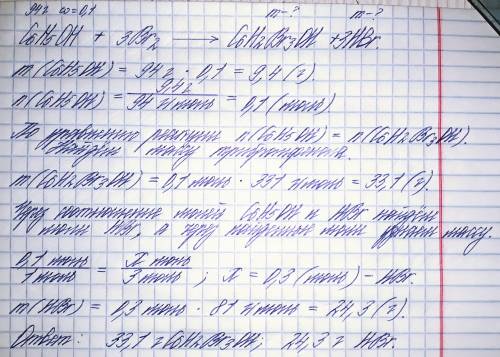 94г ω=0,1 m-? m-?
C6H5OH + 3Br2 ⟶ C6H2Br3OH + 3HBr.
m(C6H5OH) = 94г · 0,1 = 9,4 (г).
n(C6H5OH) = 9,4г / 94 г/моль = 0,1 (моль).
По уравнению реакции n(C6H5OH) = n(C6H2Br3OH).
Найдём массу трибромфенола.
m(C6H2Br3OH) = 0,1 моль · 331 г/моль = 33,1 (г).
Через соотношение молей C6H5OH и HBr найдём
моли HBr, а через найденные моли массу.
0,1 моль / 1 моль = x моль / 3 моль ; x = 0,3 (моль) - HBr.
m(HBr) = 0,3 моль · 81 г/моль = 24,3 (г).
Ответ: 33,1 г C6H2Br3OH; 24,3 г HBr.